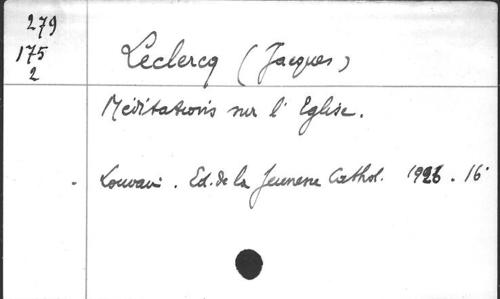 279
175
2
Leclercq (Jacques)
Méditations sur l' Eglise.
Louvain. Ed. de la Jeunesse Cathol. 1926. 16°